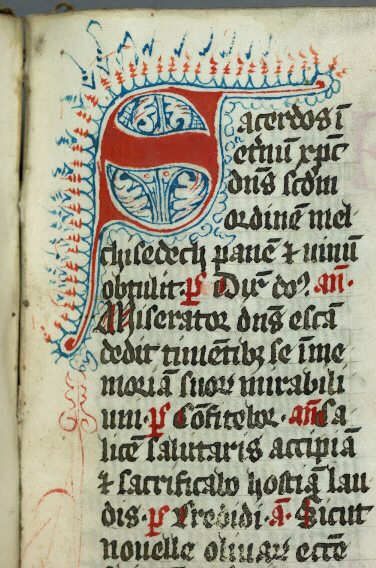 Sacerdos ī
etnū xp̄c
dn̄s scdm
ordinē mel
chisedech panē ⁊ uinū
obtulit. p̄s Dix̄ do᷒. an̄.
Miserator dn̄s escā
dedit timētibꝫ se ī me
moriā suoꝝ mirabili
um p̄s Cōfitebor. an̄ Ca
licē salutaris accipiā
⁊ sacrificabo hostiā lau
dis. p̄s Credidi. ā. Sicut
nouelle oliuaꝝ eccē